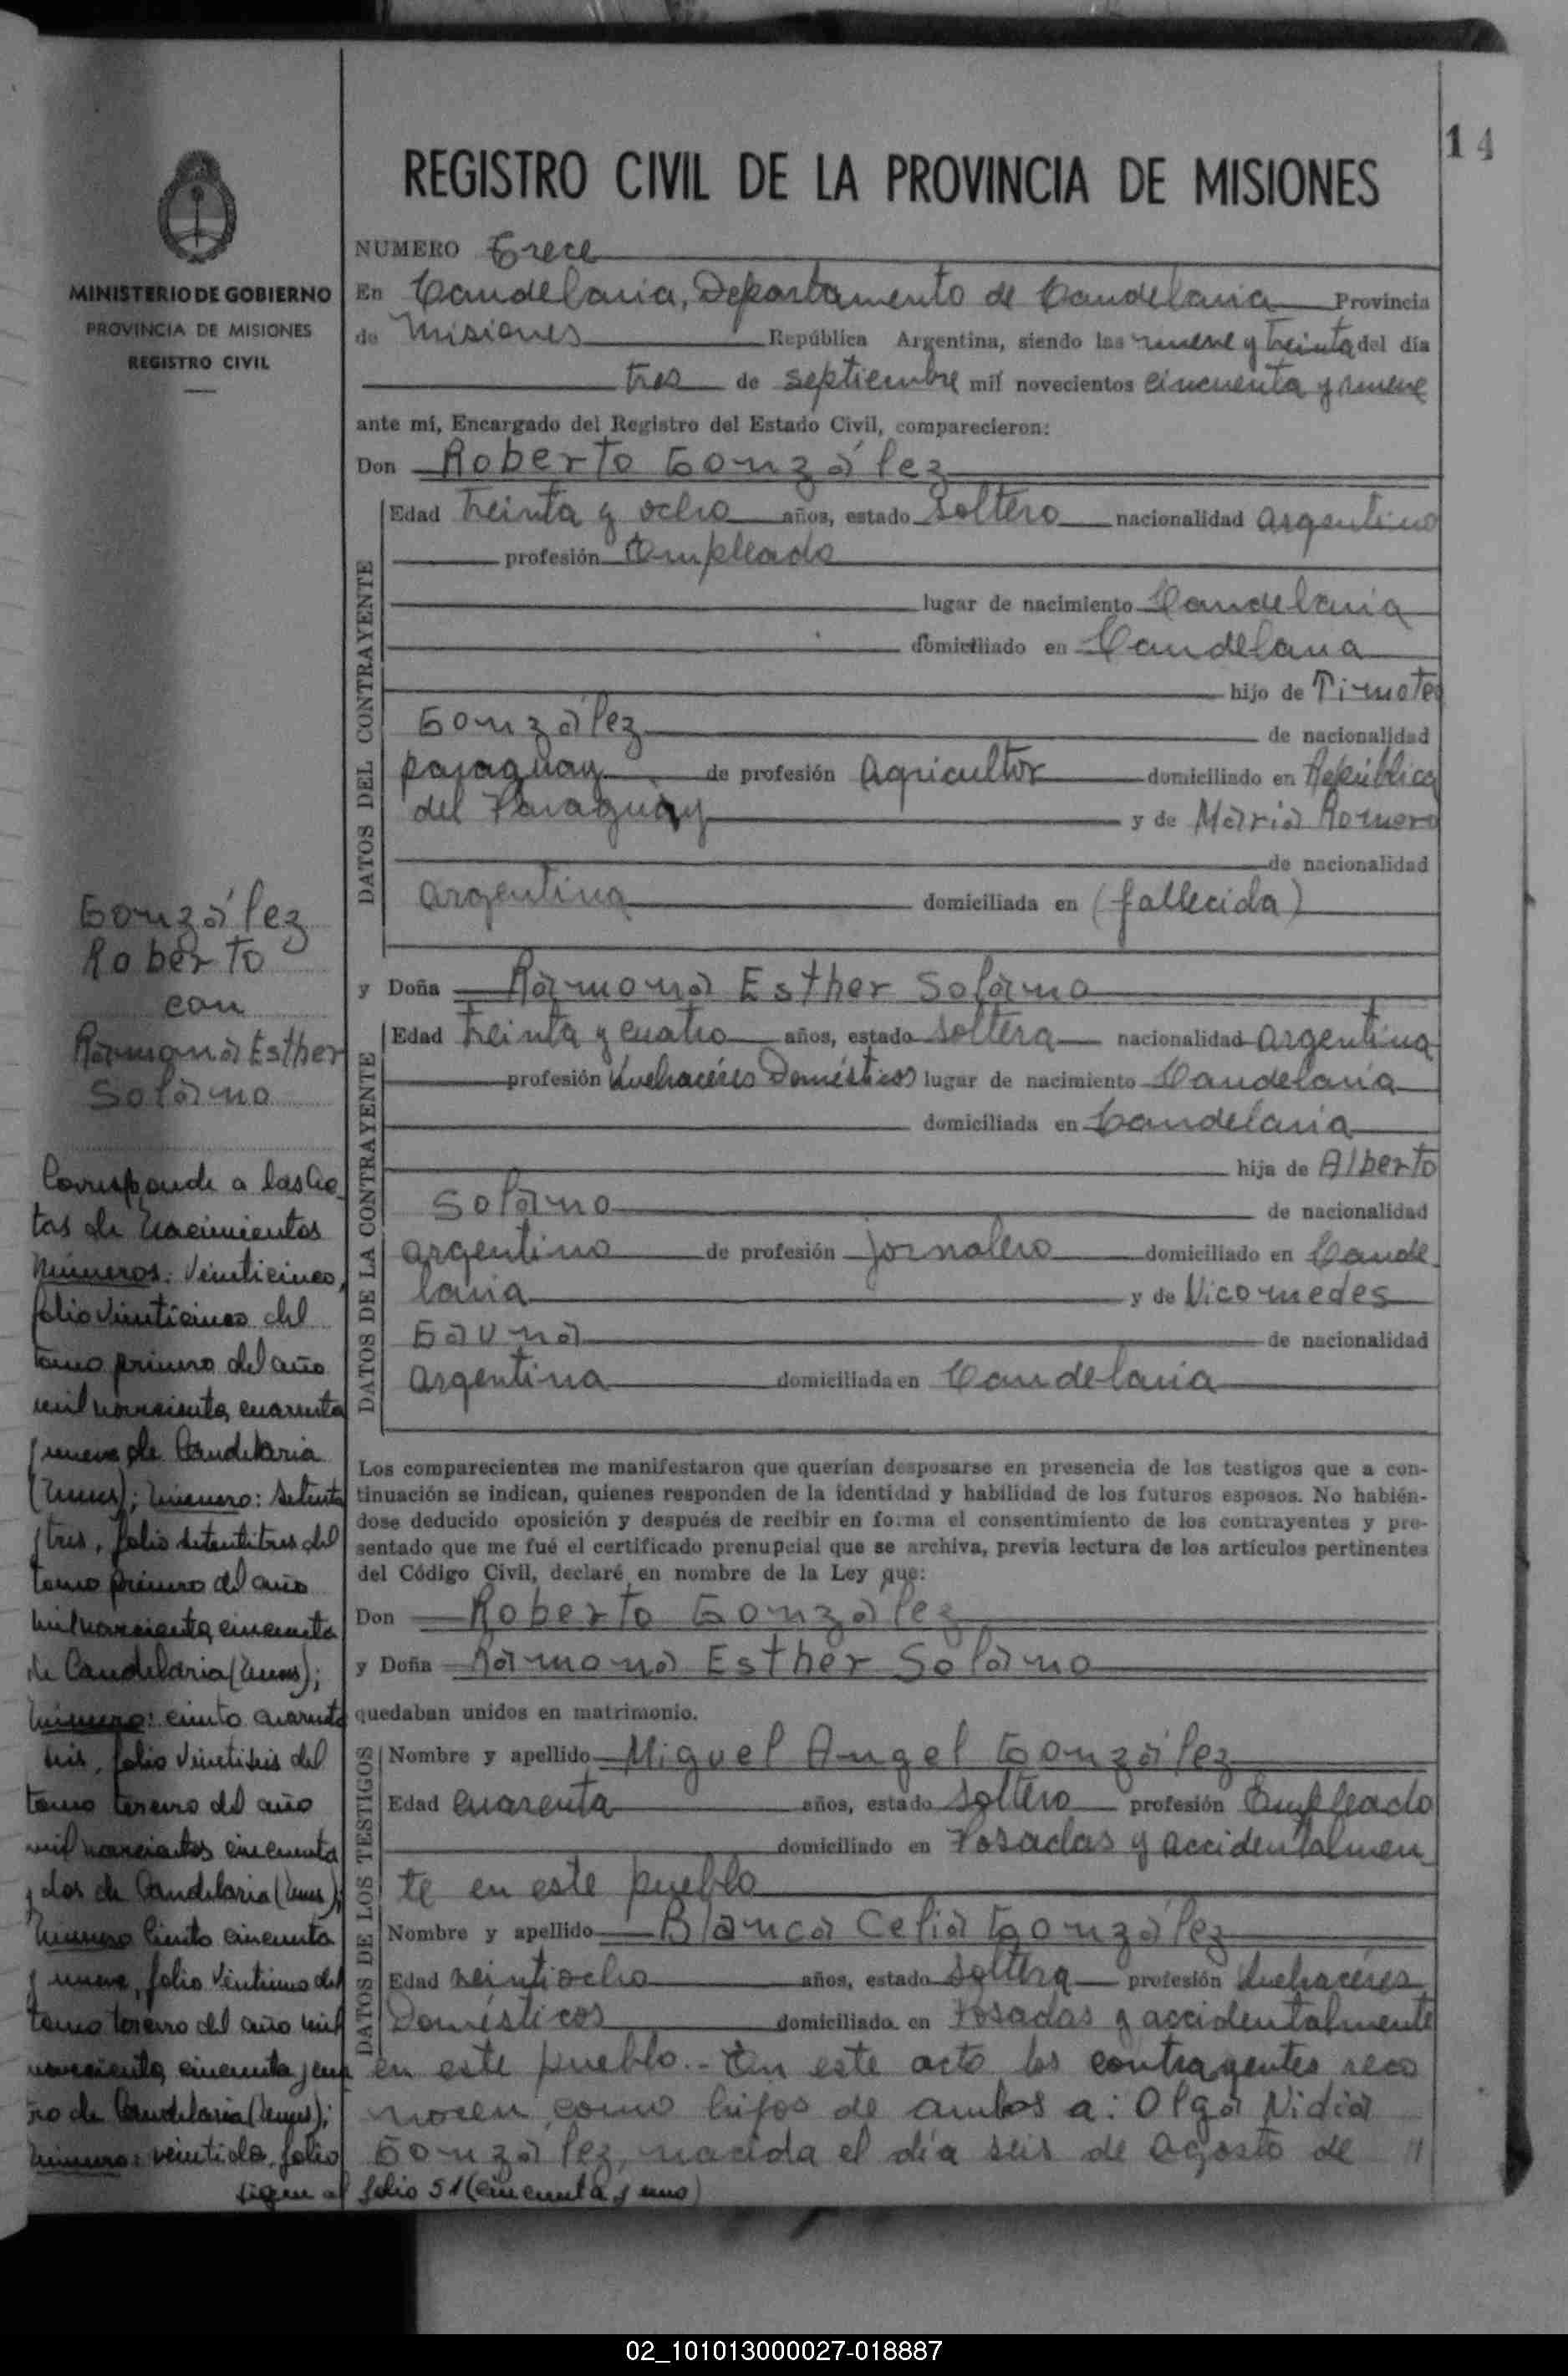 14
REGISTRO CIVIL DE LA PROVINCIA DE MISIONES
MINISTERIO DE GOBIERNO
PROVINCIA DE MISIONES
REGISTRO CIVIL
NUMERO Trece
En Candelaria, Departamento de Candelaria Provincia
de Misiones República Argentina, siendo las nueve y treinta del día
tres de septiembre mil novecientos cincuenta y nueve
ante mí, Encargado del Registro del Estado Civil, comparecieron:
Don Roberto González
DATOS DEL CONTRAYENTE
Edad treinta y ocho años, estado soltero nacionalidad argentino
profesión Empleado
lugar de nacimiento Candelaria
domiciliado en Candelaria
hijo de Timoteo
González de nacionalidad
paraguay de profesión agricultor domiciliado en República
del Paraguay y de María Romero
de nacionalidad
argentina domiciliada en (fallecida)
y Doña Ramona Esther Solano
DATOS DE LA CONTRAYENTE
Edad treinta y cuatro años, estado soltera nacionalidad argentina
profesión Quehaceres Domésticos lugar de nacimiento Candelaria
domiciliada en Candelaria
hija de Alberto
Solano de nacionalidad
argentino de profesión jornalero domiciliado en Cande
laria y de Nicomedes
Gauna de nacionalidad
argentina domiciliada en Candelaria
Los comparecientes me manifestaron que querían desposarse en presencia de los testigos que a con-
tinuación se indican, quienes responden de la identidad y habilidad de los futuros esposos. No habién-
dose deducido oposición y después de recibir en forma el consentimiento de los contrayentes y pre-
sentado que me fué el certificado prenupcial que se archiva, previa lectura de los artículos pertinentes
del Código Civil, declaré en nombre de la Ley que:
Don Roberto González
y Doña Ramona Esther Solano
quedaban unidos en matrimonio.
DATOS DE LOS TESTIGOS
Nombre y apellido Miguel Angel González
Edad cuarenta años, estado soltero profesión Empleado
domiciliado en Posadas y accidentalmen
te en este pueblo
Nombre y apellido Blanca Celia González
Edad veintiocho años, estado soltera profesión Quehaceres
Domésticos domiciliada en Posadas y accidentalmente
en este pueblo.- En este acto los contrayentes reco
nocen como hijos de ambos a: Olga Nidia
González, nacida el día seis de agosto de "
González
Roberto
con
Ramona Esther
Solano
Corresponde a las Ac
tas de Nacimientos
Números: Veinticinco,
folio veinticinco del
tomo primero del año
mil novecientos cuarenta
y nueve de Candelaria
número: setenta
y tres, folio setentitres del
tomo primero del año
mil novecientos cincuenta
de Candelaria
número: ciento cuarenta
seis, folio veintiseis del
tomo tercero del año
mil novecientos cincuenta
y dos de Candelaria
número ciento cincuenta
y nueve, folio del
tomo tercero del año mil
novecientos cincuenta y cua
tro de Candelaria
número: veintidos, folio
sigue al folio 51 (cincuenta y uno)
02_101013000027-018887